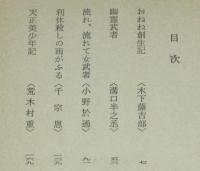 目次
おねね創生記 〈木下藤吉郎〉 七
幽霊武者 〈溝口半之丞〉
流れ、流れて女武者 〈小野於通〉
利休殺しの雨がふる 〈千宗恩〉
天正美少年記 〈荒木村重〉